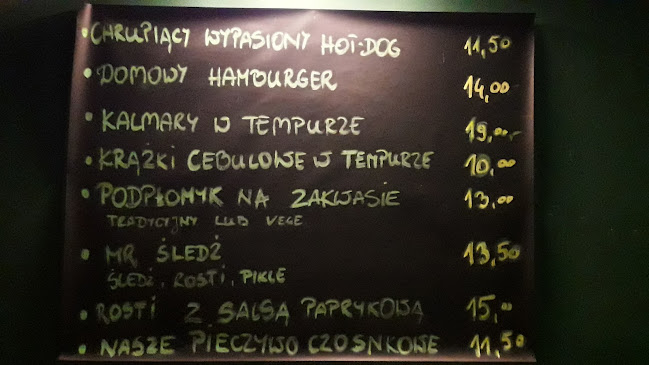 • CHRUPIĄCY WYPASIONY HOT-DOG 11,50
• DOMOWY HAMBURGER 14,00
• KALMARY W TEMPURZE 19,00
• KRĄŻKI CEBULOWE W TEMPURZE 10,00
• PODPŁOMYK NA ZAKWASIE 13,00
TRADYCYJNY LUB VEGE
• MR. ŚLEDŹ 13,50
ŚLEDŹ, ROSTI, PIKLE
• ROSTI Z SALSĄ PAPRYKOWĄ 15,00
• NASZE PIECZYWO CZOSNKOWE 11,50